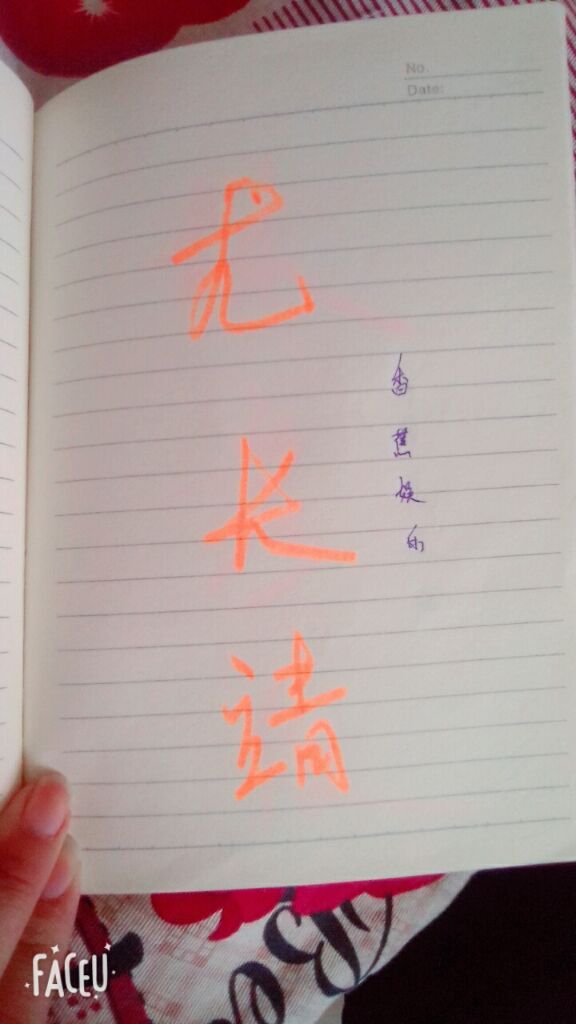 No.
Date:
尤
长
靖
香
蕉
娱
的
FACEU